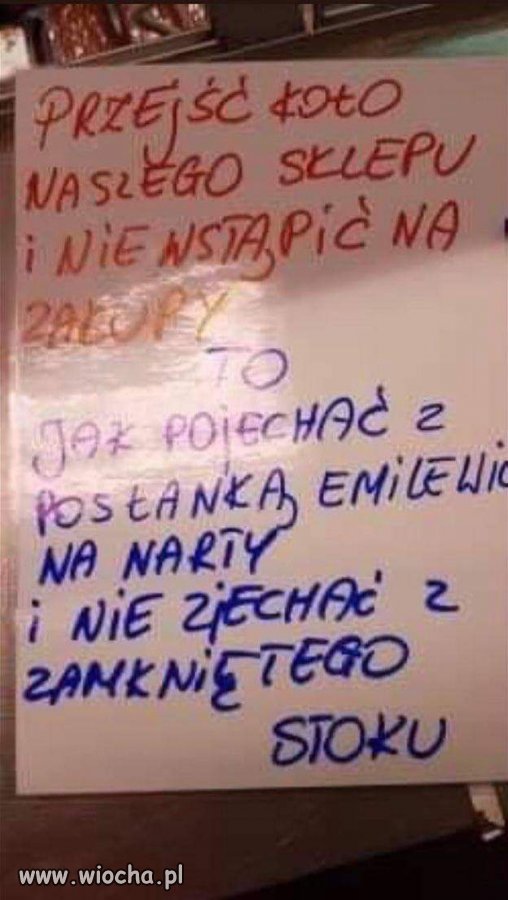 PRZEJŚĆ KOŁO
NASZEGO SKLEPU
i NiE WSTĄPiĆ NA
ZAKUPY
TO
JAK POJECHAĆ Z
POSŁANKĄ EMiLEWIC
NA NARTY
i NiE ZJECHAĆ Z
ZAMKNiĘTEGO
STOKU
www.wiocha.pl